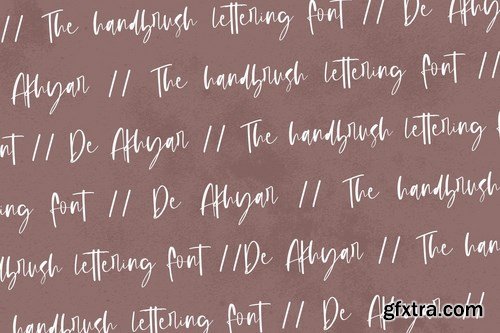 // The handbrush lettering font // De Athyar
Athyar // The handbrush lettering font //
nt // De Athyar // The handbrush lettering f
ing font // De Athyar // The handbrush
dbrush lettering font //De Athyar // The han
handbrush lettering font // De Athyar //
gfxtra.com